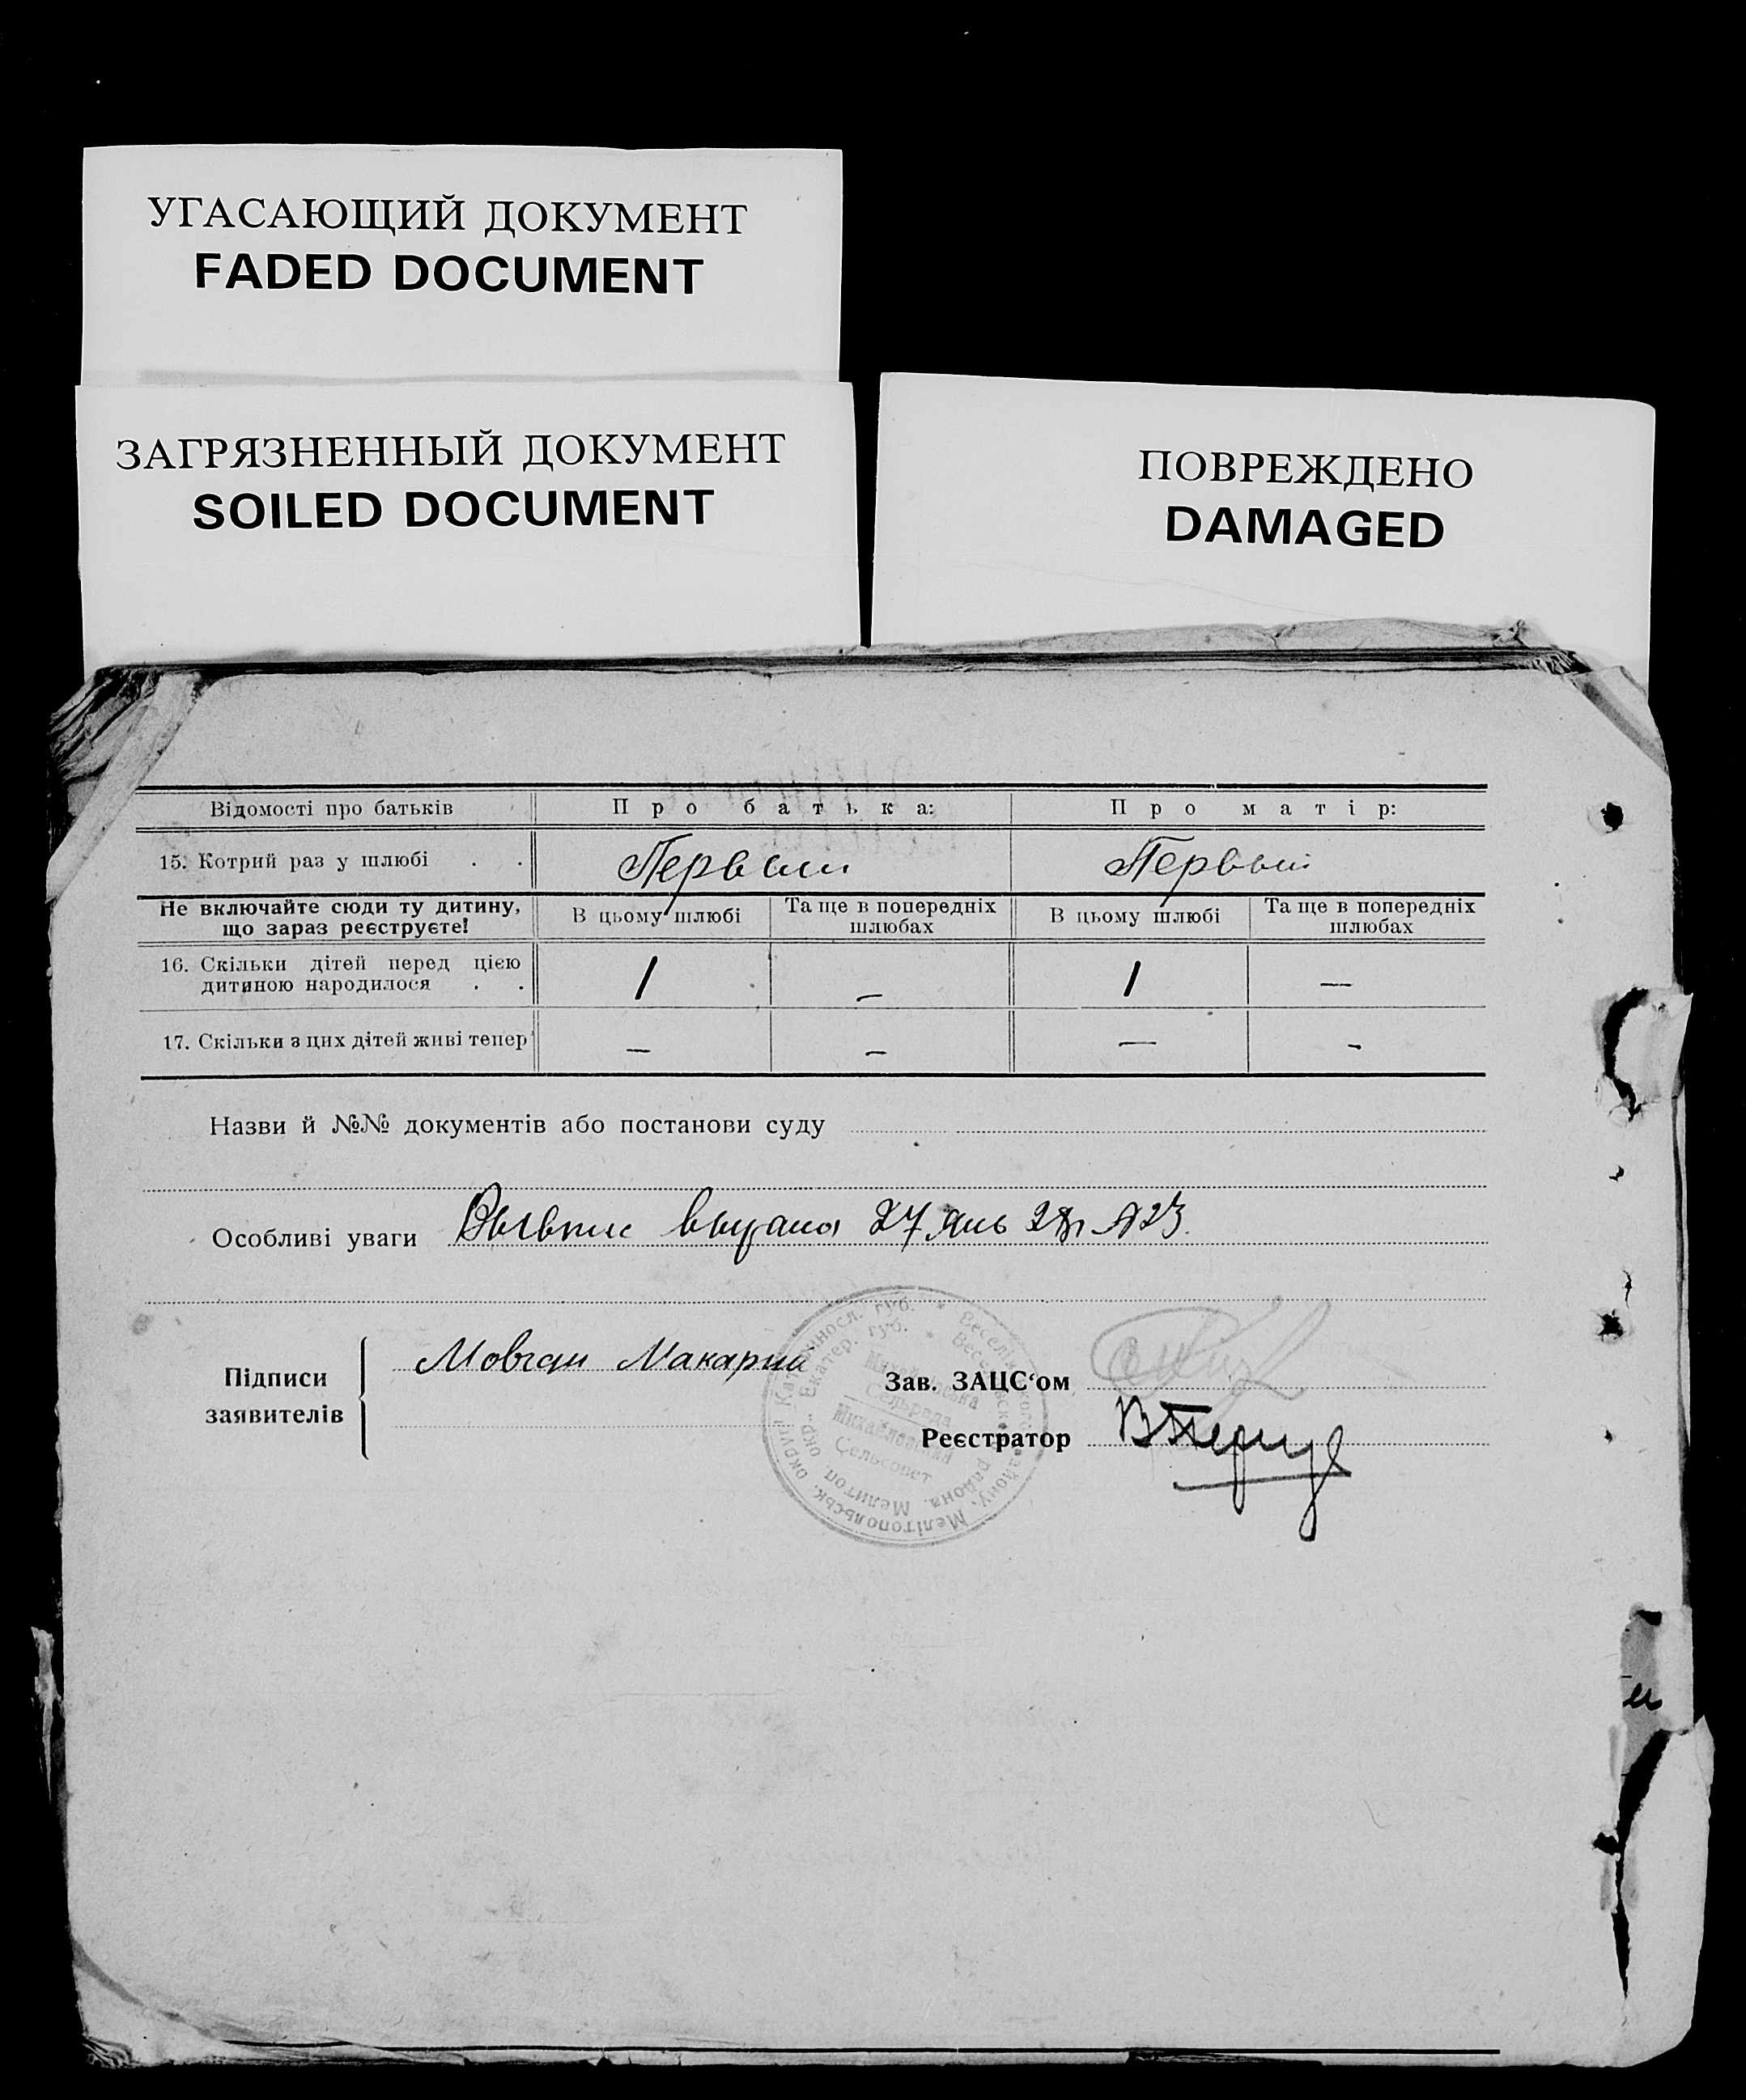 УГАСАЮЩИЙ ДОКУМЕНТ
FADED DOCUMENT
ЗАГРЯЗНЕННЫЙ ДОКУМЕНТ
SOILED DOCUMENT
ПОВРЕЖДЕНО
DAMAGED
Відомості про батьків Про батька: Про матір:
15. Котрий раз у шлюбі . . Первый Первый
Не включайте сюди ту дитину, що зараз реєструєте! В цьому шлюбі Та ще в попередніх шлюбах В цьому шлюбі Та ще в попередніх шлюбах
16. Скільки дітей перед цією
дитиною народилося . . 1 — 1 —
17. Скільки з цих дітей живі тепер — — — -
Назви й №№ документів або постанови суду
Особливі уваги 27 янв
Підписи заявителів Мовчан Макарий
Зав. ЗАЦС'ом
Реєстратор
Катериносл. губ. * Веселівського району, Мелітопольськ. округи
Екатер. губ. * Веселовск. района. Мелитоп. окр.
Михайлівська
Сельрада
Михайловский
Сельсовет